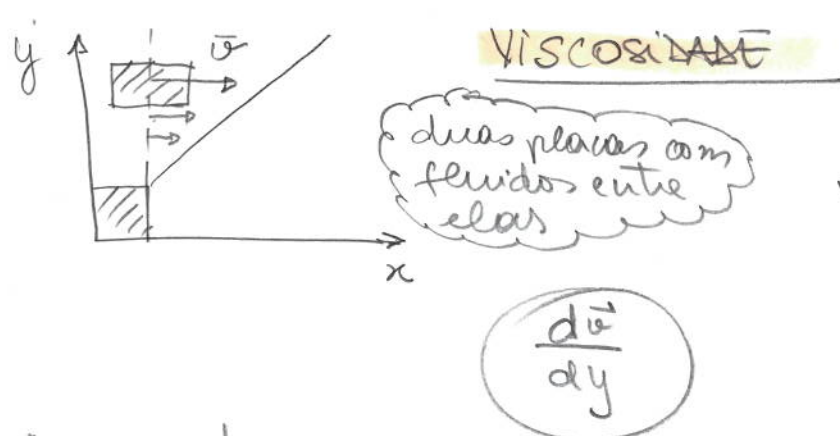 y
v⃗
VISCOSIDADE
duas placas com
fluidos entre
elas
x
dv⃗
dy